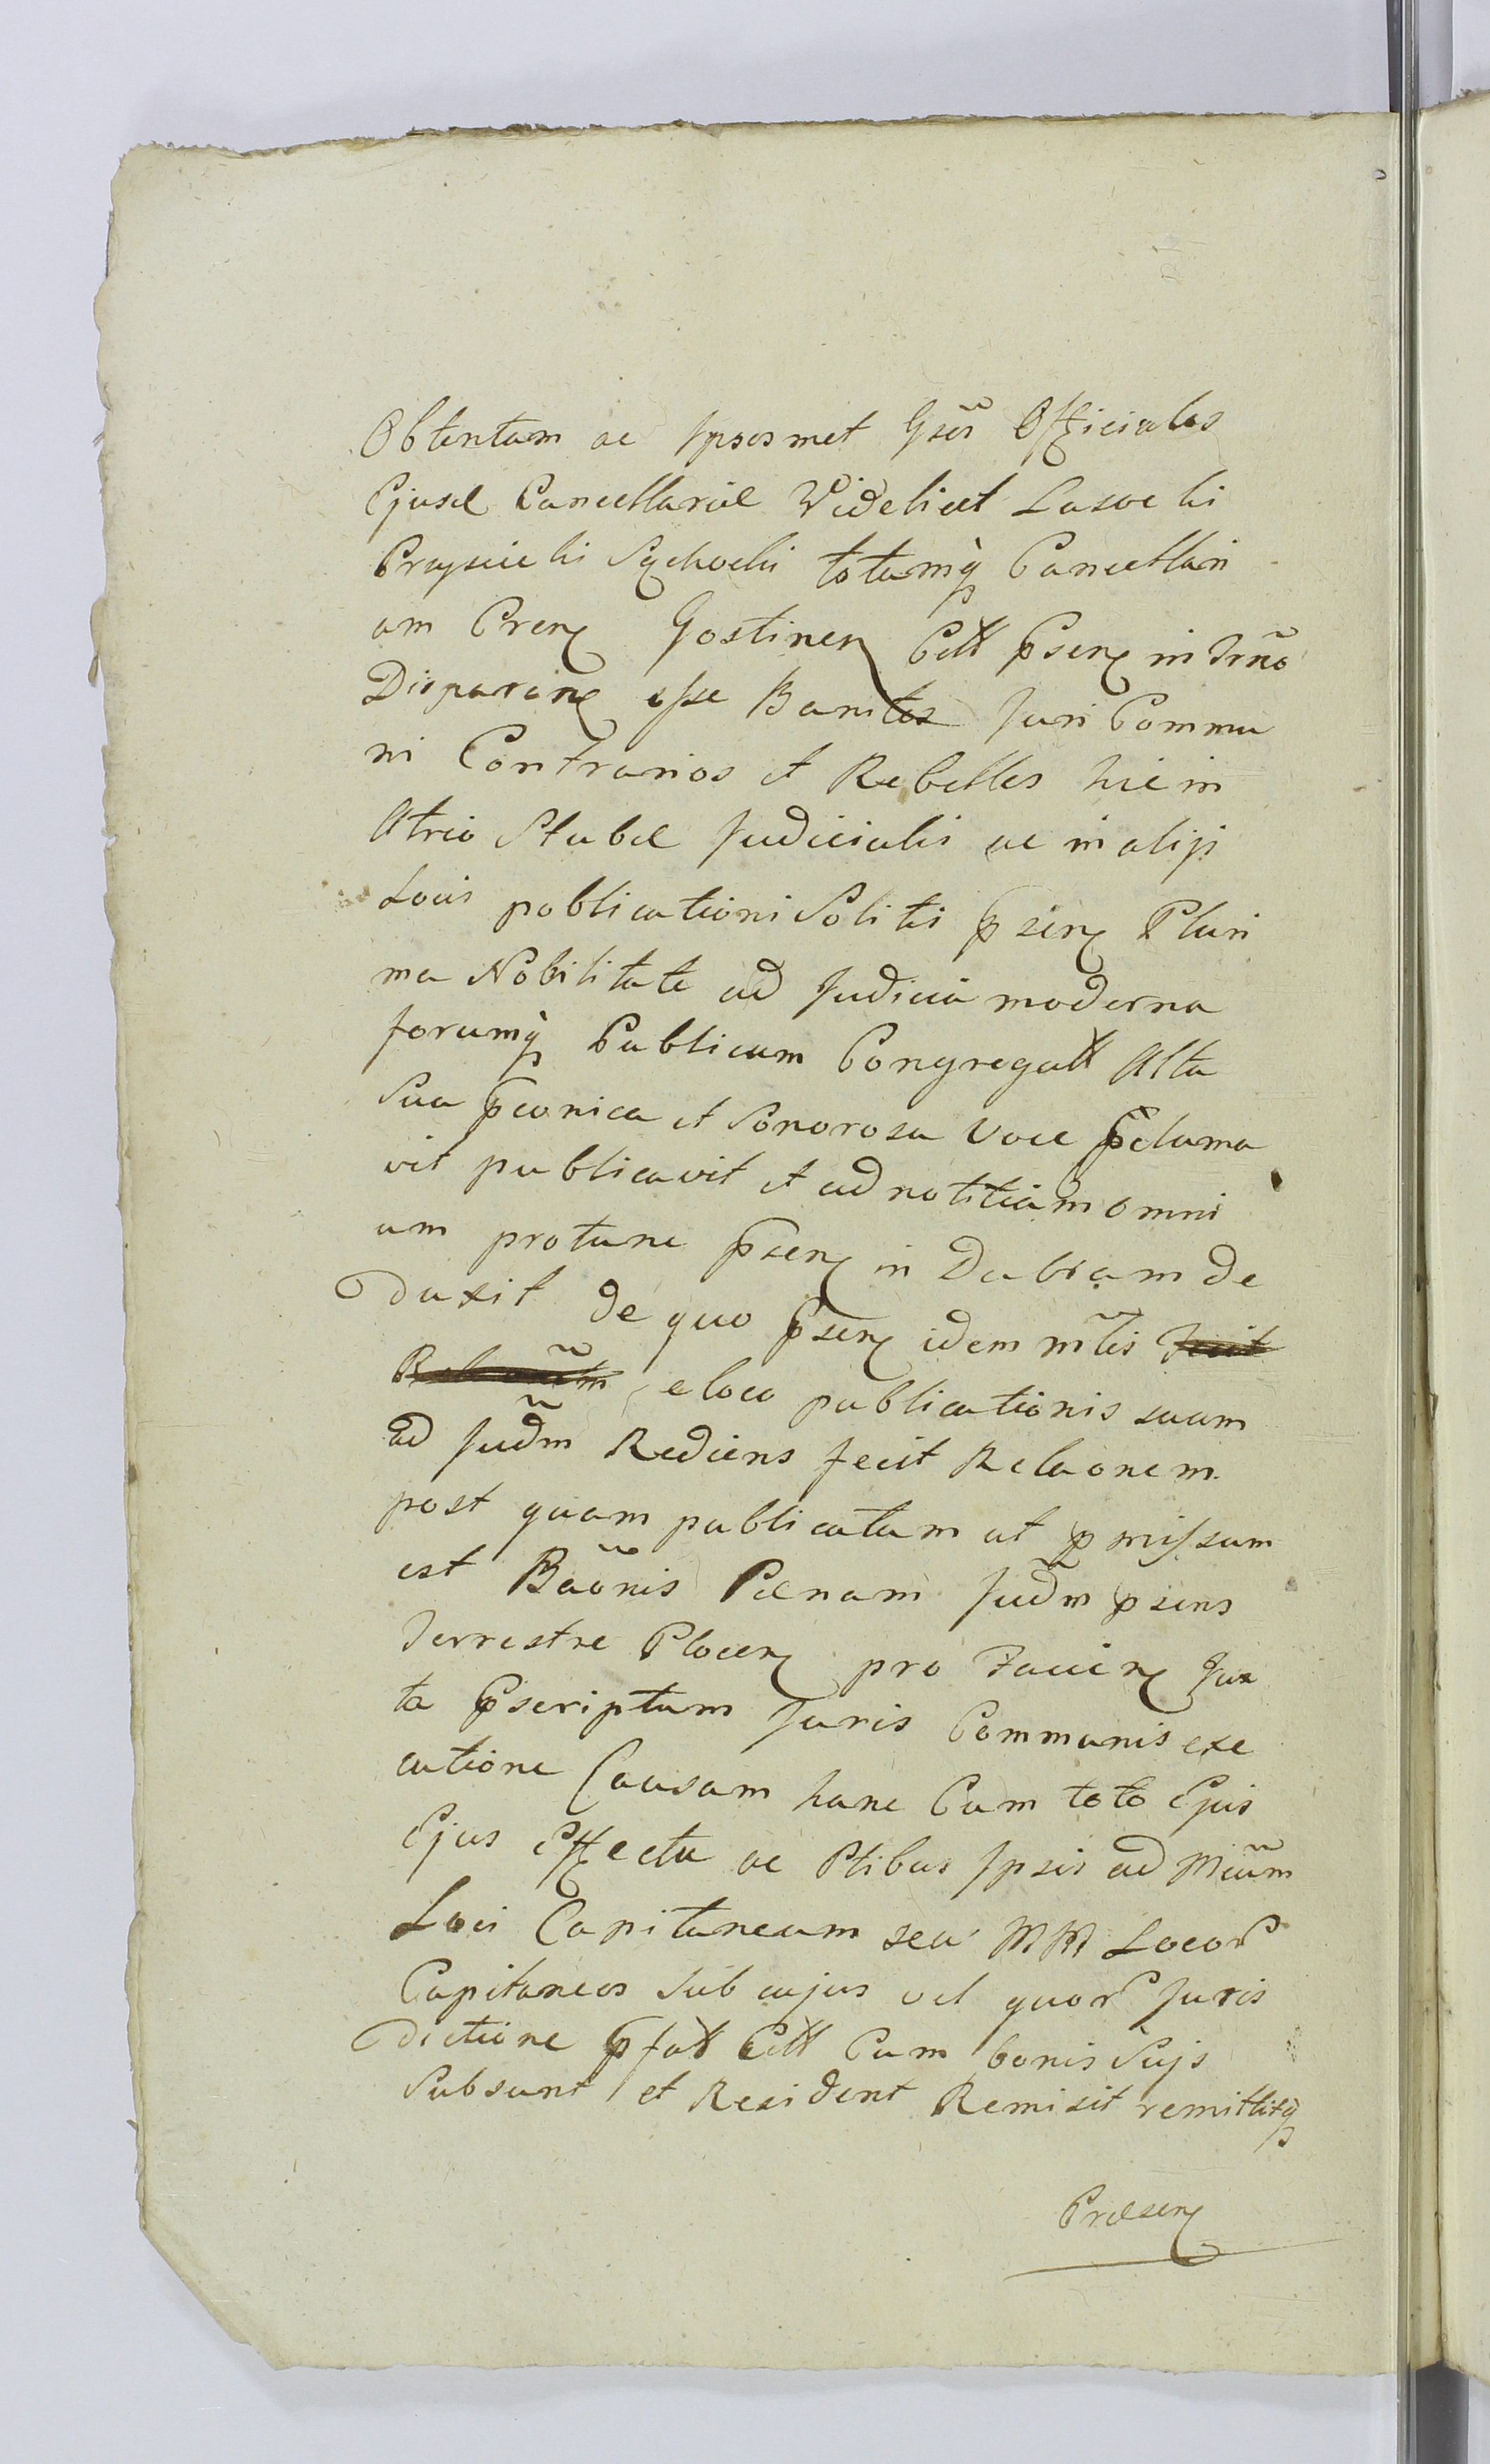 Obtentam ac Ipsosmet Gsos̃ Officiales
Ejusd Cancellariæ Videlicet Lasocki
Praysiecki Sychocki totamq̀ Cancellari
am Cren Gostinen Citt p̄sen in Trñ̃o
Disparen esse Banitos Juri Commu
ni Contrarios et Rebelles hic in
Atrio Stubæ Judicialis ac in alijs
Locis publicationi Solitis p̄sen Pluri
ma Nobilitate ad Judicia moderna
forumq̀ Publicum Congregatt Alta
Sua p̄conica et Sonorosa Voce p̄clama
vit publicavit et ad notitiam omni
um protunc p̄sen in Dubiam de
duxit de quo p̄sen idem mlis̃ fecit
Relaõem e loco publicationis suam
ad Judm̃ Rediens fecit Relaonem
post quam publicatam ut p̄missum
est Baõnis Pænam Judm̃ p̄sens
Terrestre Plocen pro Facien Jux
ta P̄scriptum Juris Communis exe
cutione Causam hanc Cum toto Ejus
Ejus Effectu ac Ptibus Ipsis ad Mcum̃
Loci Capitaneum seu MM Locor
Capitaneos Sub cujus vel quor Juris
dictione p̄fatt Citt Cum bonis Suis
Subsunt et Resident Remisit remittitq̀
Præsen